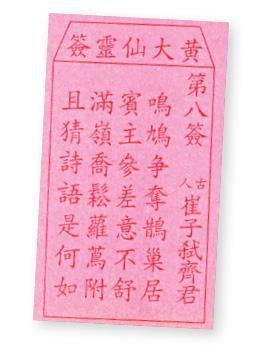 黄大仙靈簽
第八簽
古人
崔子弑齊君
鳴鳩争奪鵲巢居
賓主參差意不舒
滿嶺喬鬆蘿蔦附
且猜詩語是何如